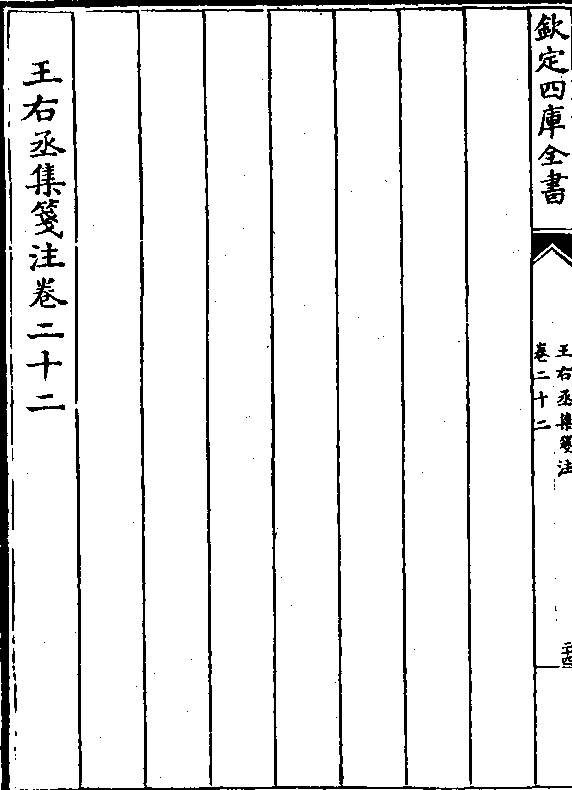 欽定四庫全書
王右丞集箋注
卷二十二
二十四
王右丞集箋注卷二十二